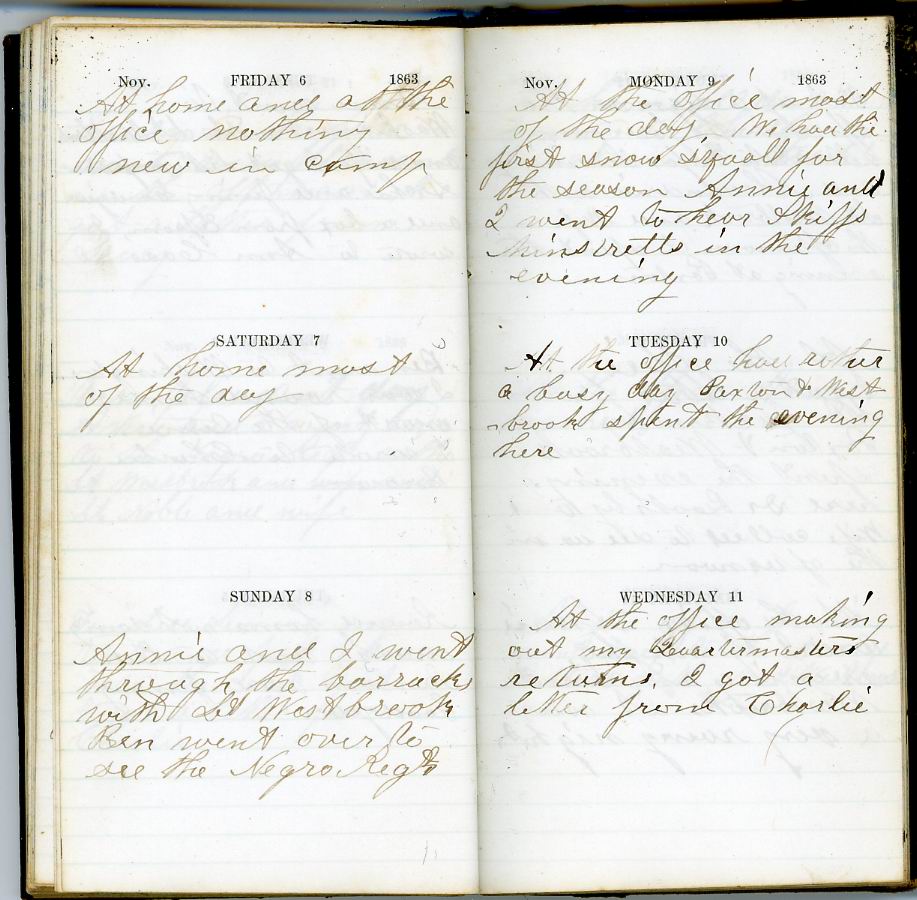 Nov. FRIDAY 6 1863
At home and at the
office nothing
new in camp
SATURDAY 7
At home most
of the day
SUNDAY 8
Annie and I went
through the barracks
with Lt Westbrook
Ben went over to
see the Negro Regts
Nov. MONDAY 9 1863
At the office most
of the day. We had the
first snow squall for
the season Annie and
I went to hear Skiffs
Minstrells in the
evening
TUESDAY 10
At the office had rather
a busy day Paxton & West
-brook spent the evening
here
WEDNESDAY 11
At the office making
out my Quartermasters
returns. I got a
letter from Charlie